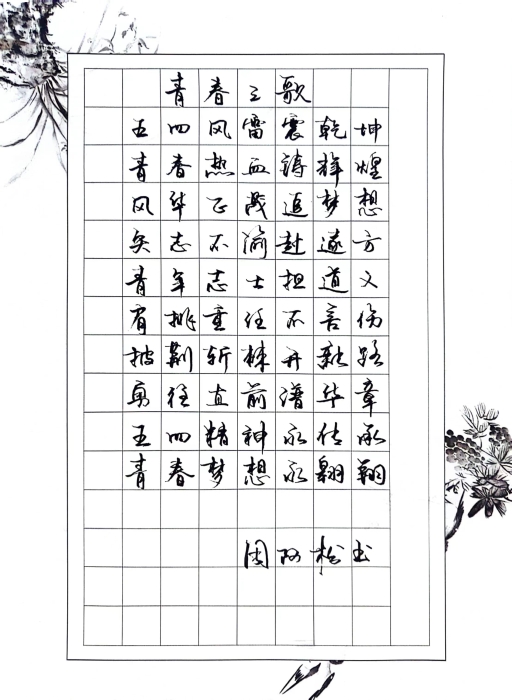 青春之歌
五四风雷震乾坤
青春热血铸辉煌
风华正茂追梦想
矢志不渝赴远方
青年志士担道义
肩挑重任不言伤
披荆斩棘开新路
勇往直前谱华章
五四精神永传承
青春梦想永翱翔
周阿松书